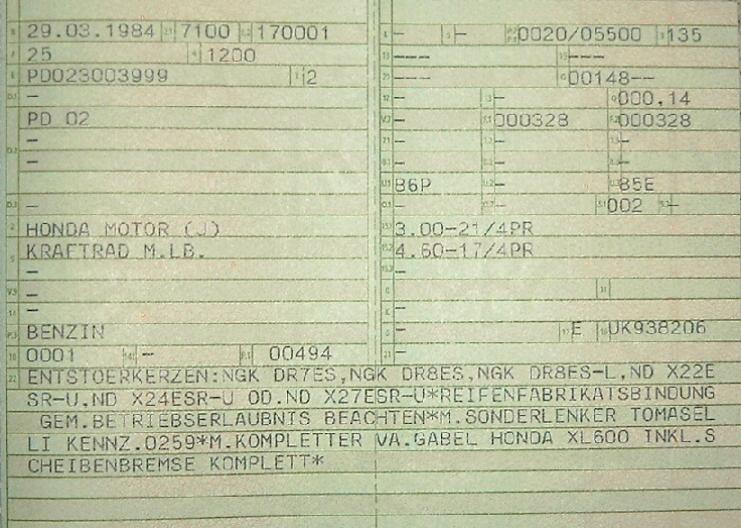 29.03.1984 7100 170001
25 1200
PD023003999 2
—
PD 02
—
—
—
HONDA MOTOR (J)
KRAFTRAD M.LB.
—
—
—
BENZIN
0001 — 00494
— — 0020/05500 135
--- ---
--- 00148--
— — 000,14
— 000328 000328
— — —
— — —
86P — 85E
— — 002 —
3.00-21/4PR
4.60-17/4PR
—
—
— E UK938206
—
ENTSTOERKERZEN:NGK DR7ES,NGK DR8ES,NGK DR8ES-L,ND X22E
SR-U,ND X24ESR-U OD.ND X27ESR-U*REIFENFABRIKATSBINDUNG
GEM.BETRIEBSERLAUBNIS BEACHTEN*M.SONDERLENKER TOMASEL
LI KENNZ.0259*M.KOMPLETTER VA.GABEL HONDA XL600 INKL.S
CHEIBENBREMSE KOMPLETT*